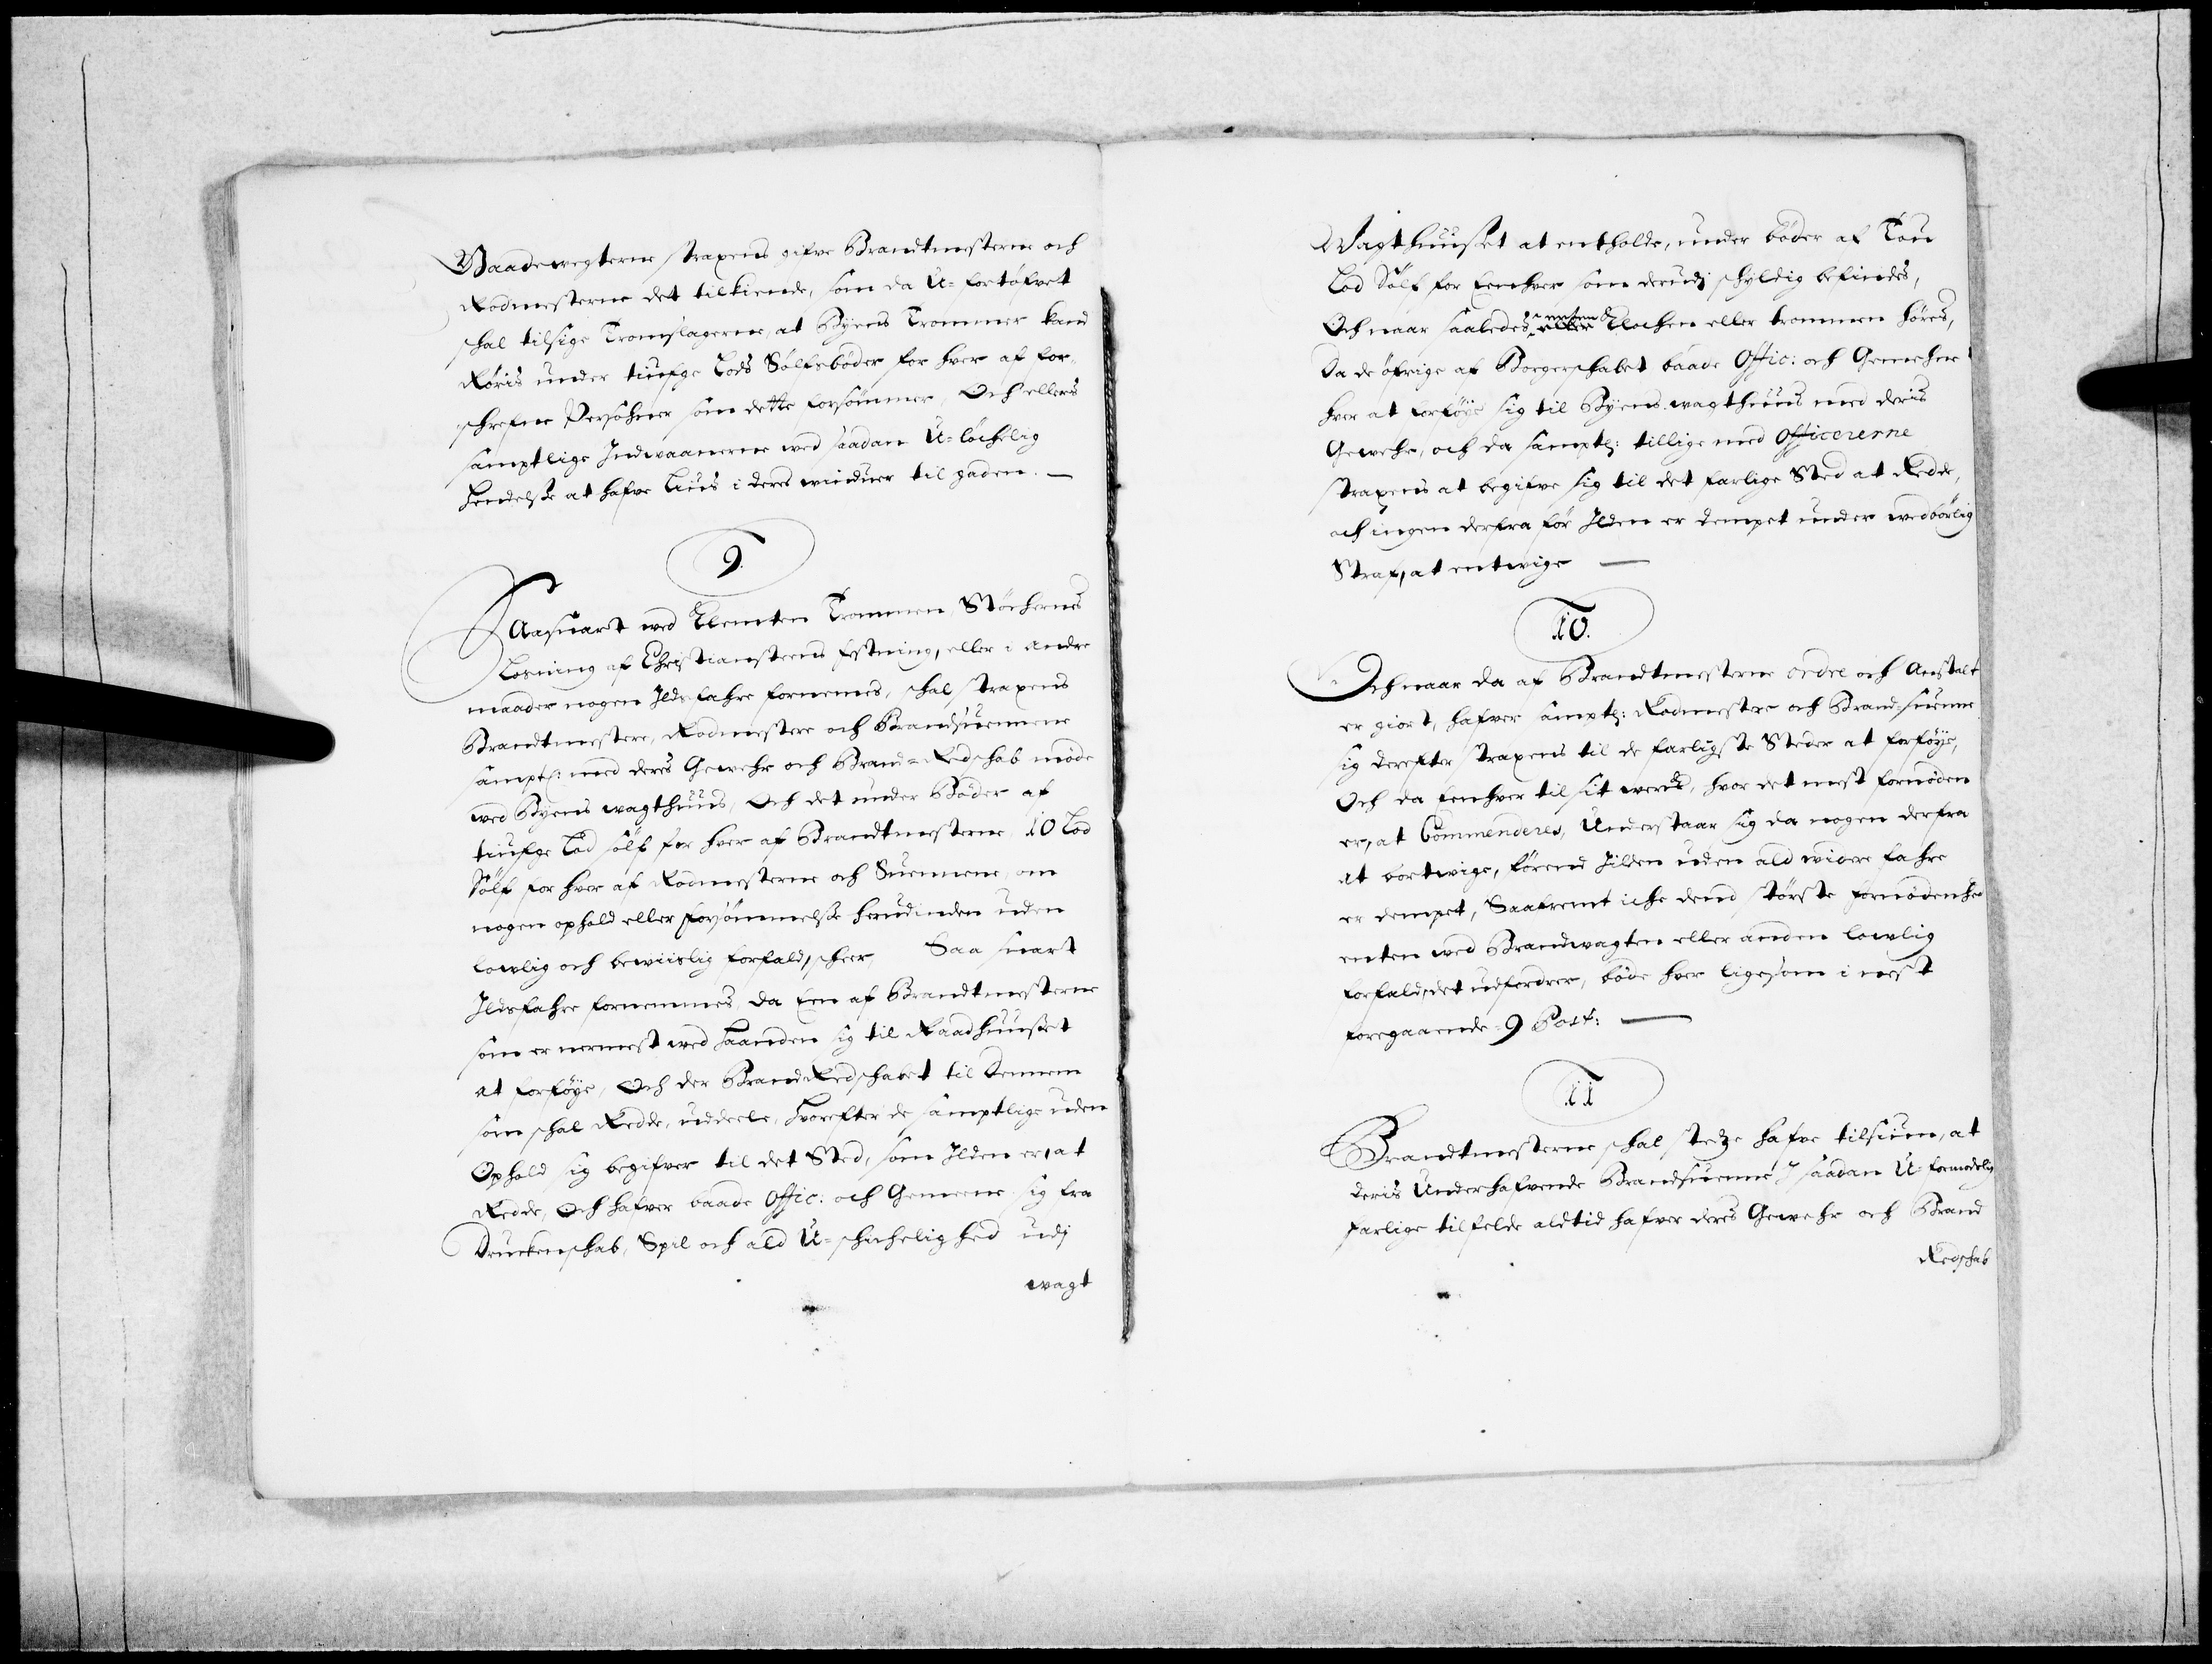 Vaadewegterne strapens gifve Brandtmesterne och
Rodmesterne det tilkiende, som da U-fortøfvet
schal tilsige Tromslagerne, at Byens Trommer kand
Røris under tiufge Lods Sølfsbøder for hver af for-
schrefne Persohner som dette forsømmer, Och ellers
samptlige Indvaanerne ved saadan U-löchelig
hendelsse at hafve Liüs i deres vinduer til gaden. —
9.
Saasnart ved Klemten Trommen Støchernes
Løsning af Christiansteens festning, eller i andre
maader nogen Ildsfahre fornemes, schal strapens
Brandtmestere, Rodmestere och Brandsuennene
sampt: med deres Gewehr och Brand-Redschab møde
ved Byens wagthuus, Och det under Bøder af
tiufge Lod sølf for hver af Brandtmesterne, 10 Lod
Sølf for hver af Rodmesterne och Suennene, om
nogen ophold eller forsømmelsse herudinden uden
lowlig och bewiislig forfald, scheer, Saa snart
Ildsfahre fornemmes da Een af Brandtmesterne
som er nermest ved Haanden sig til Raadhuusset
at forføye, Och der BrandRedschabet til Dennem
som schal Redde, uddeele, Hvorefter de samptlige uden
Ophold sig begifver til det Sted, som Ilden er, at
Redde, Och hafver baade Offic: och Gemeene sig fra
Druckenschab, Spil och ald U-schichelighed udj
wagt
Wagthuusset at entholde, under bøder af Tou
Lod Sølf for Eenhver som derudj schyldig befindes,
Och naar saaledes enten Klochen eller trommen høres,
Da de øfrige af Borgerschabet baade Offic: och Gemehne
hver at forføye sig til Byens wagthuus med deris
Gewehr, och da sampt: tillige med Officererne
strapens at begifve sig til det farlige Sted at Redde,
och ingen derfra før Ilden er dempet under wedbørlig
Straf, at entvige —
10.
Och naar da af Brandtmesterne ordre och Anstalt
er giort, hafver sampt: Rodmestere och Brand-suenne
sig derefter strapens til de farligste Steder at forføye,
Och da Eenhver til sit werck, hvor det mest fornøden
er, at Commenderes, Understaar sig da nogen derfra
at bortvige, førend Jlden uden ald widere fahre
er dempet, Saafremt iche dend største fornødenhed
enten ved Brandwagten eller anden lowlig
forfald, det udfordrer, bøde hver ligesom i nest
foregaaende 9 Post: —
11
Brandtmesterne schal stedze hafve tilsiun, at
deris Underhafvende Brandsuenne J saadan U-formodelig
farlige tilfelde aldtid hafver deres Gewehr och Brand
Redschab